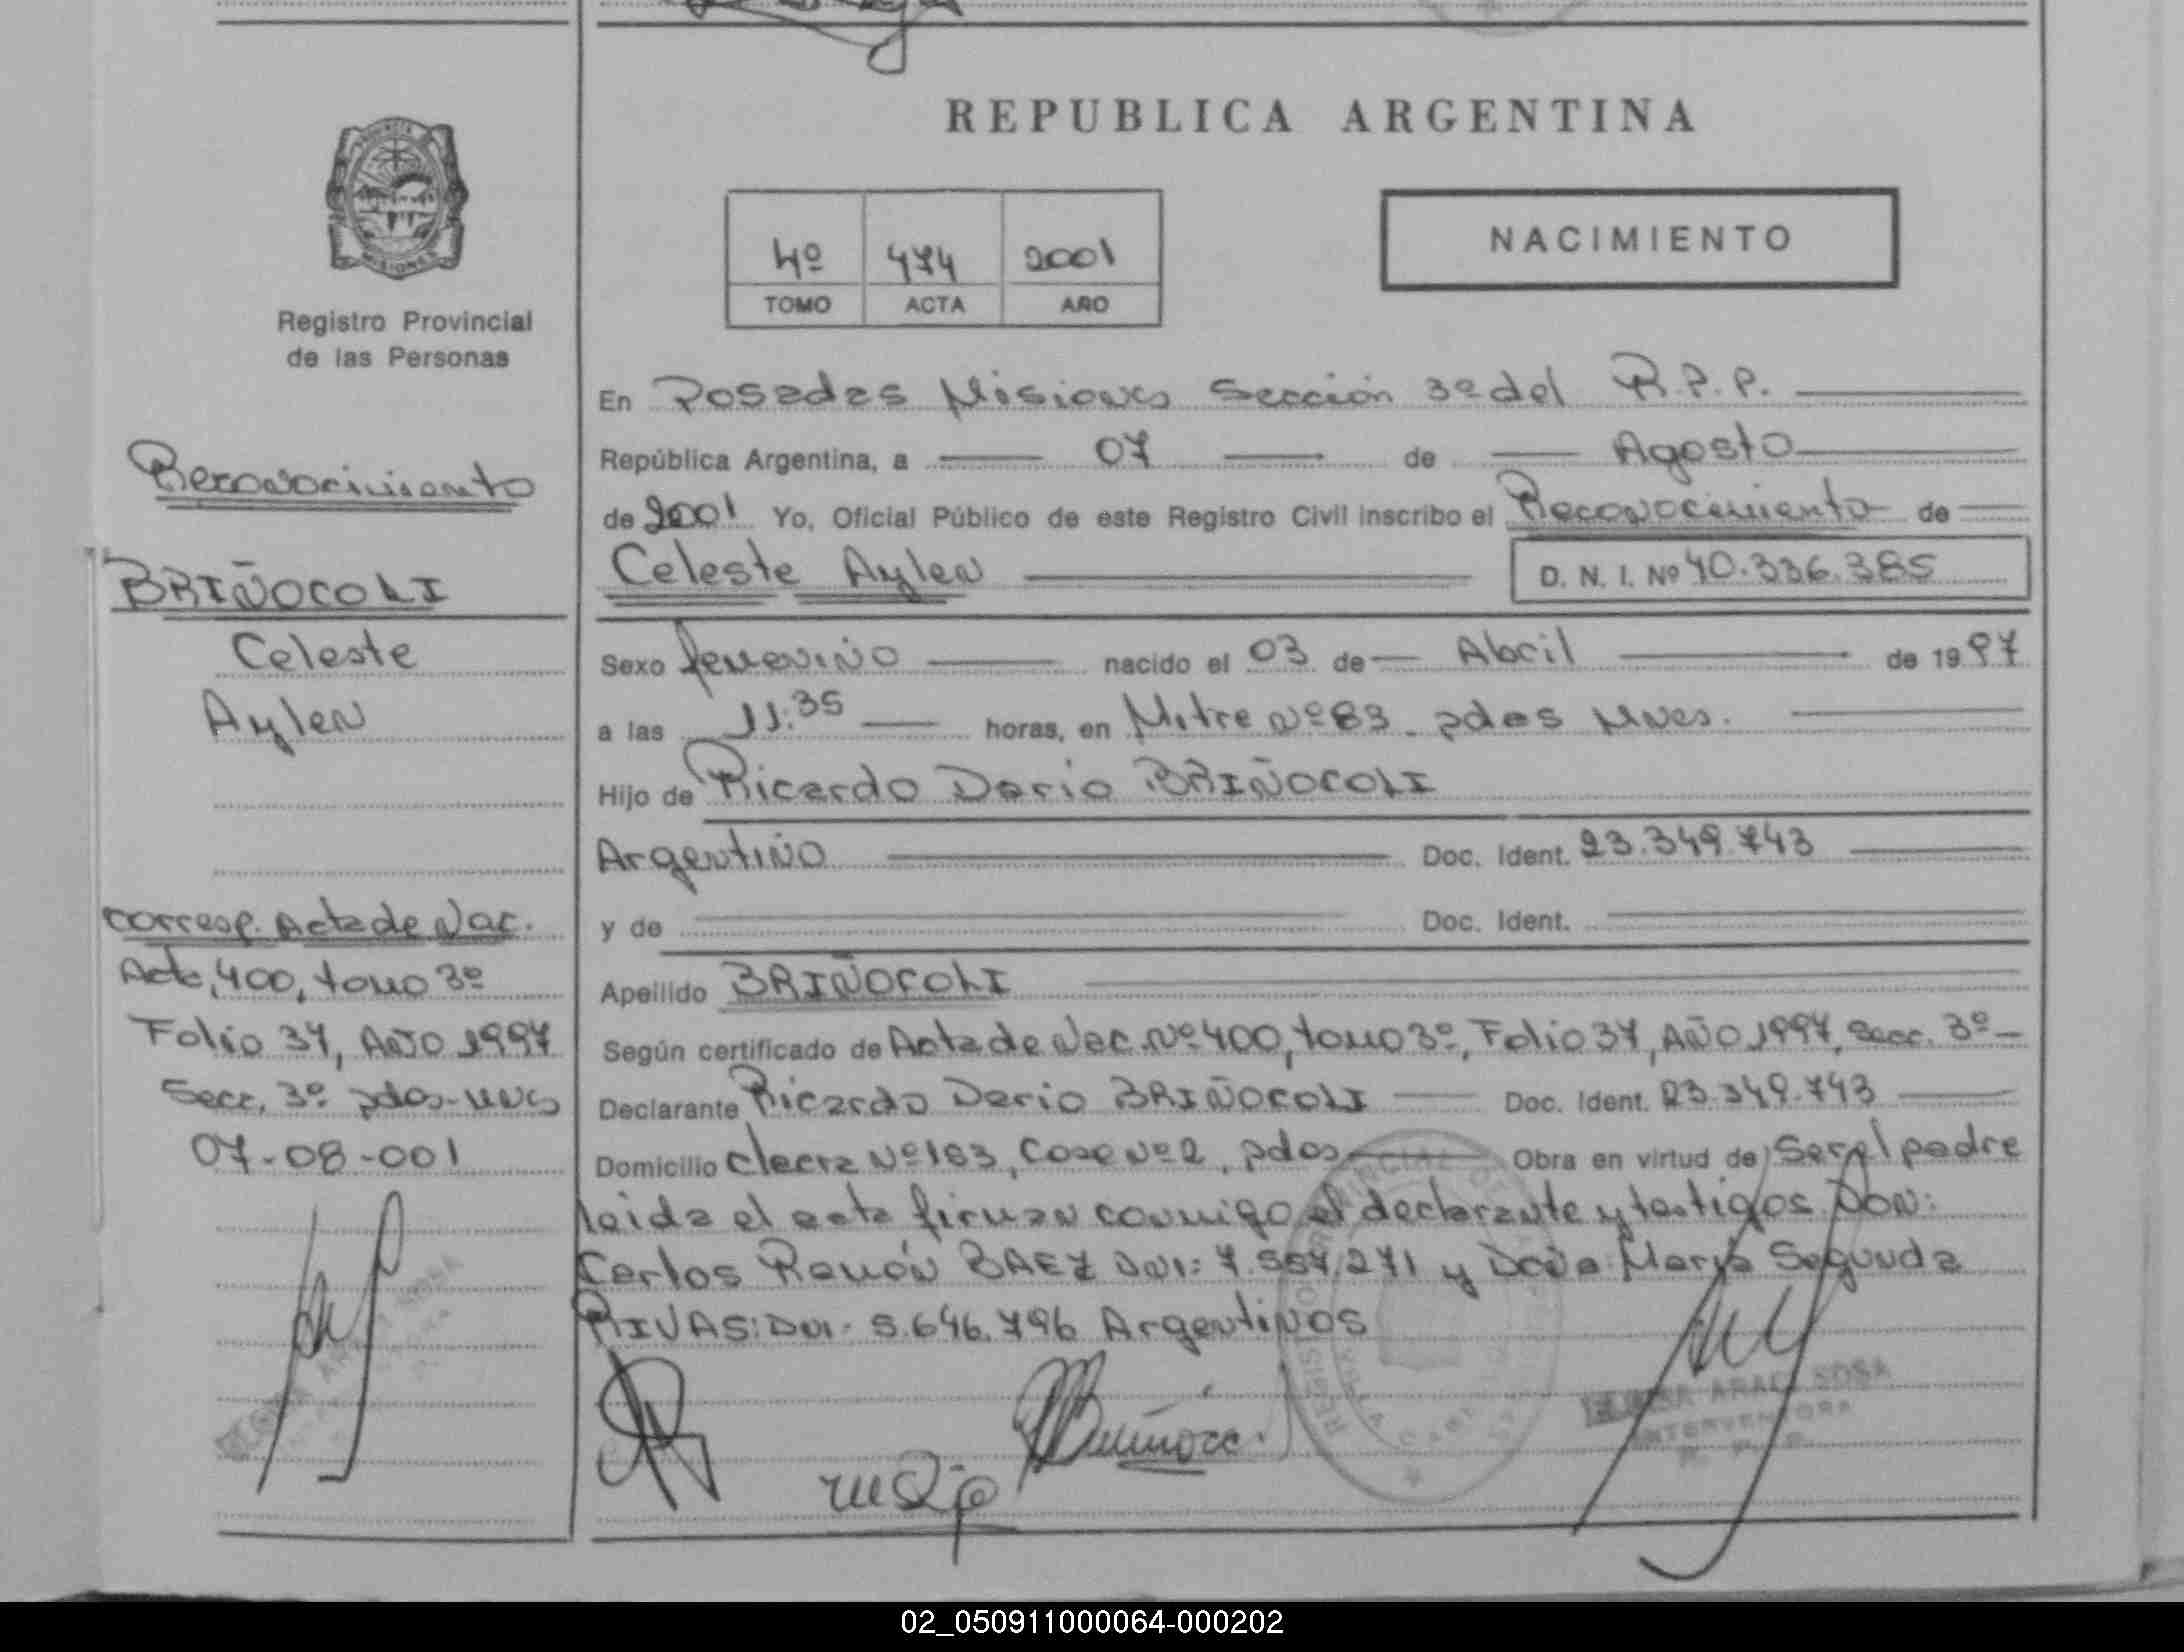 REPUBLICA ARGENTINA
PROVINCIA
MISIONES
Registro Provincial
de las Personas
4º 474 2001
TOMO ACTA AÑO
NACIMIENTO
En Posadas Misiones Sección 3º del R.P.P.
República Argentina, a 07 de Agosto
de 2001 Yo, Oficial Público de este Registro Civil inscribo el Reconocimiento de
Celeste Aylen D. N. I. Nº 40.336.385
Sexo femenino nacido el 03 de Abril de 1997
a las 11:35 horas, en Mitre Nº 83 - pdas Mnes.
Hijo de Ricardo Dario BRIÑOCOLI
Argentino Doc. Ident. 23.349.743
y de Doc. Ident.
Apellido BRIÑOCOLI
Según certificado de Acta de Nac. Nº 400, tomo 3º, Folio 37, AÑO 1997, Secc. 3º
Declarante Ricardo Dario BRIÑOCOLI Doc. Ident. 23.349.743
Domicilio chacra Nº 183, Casa Nº 2, pdas Obra en virtud de Ser el padre
leida el acta firman conmigo el declarante y testigos DON:
Carlos Ramón BAEZ DNI: 7.557.271 y Doña Maria Segunda
RIVAS: DNI- 5.646.796 Argentinos
Reconocimiento
BRIÑOCOLI
Celeste
Aylen
corresp. Acta de Nac.
Acta, 400, tomo 3º
Folio 37, AÑO 1997
Secc. 3º pdas-mns
07-08-001
ARACI SOSA
INTERVENTORA
R. P. P.
02_050911000064-000202